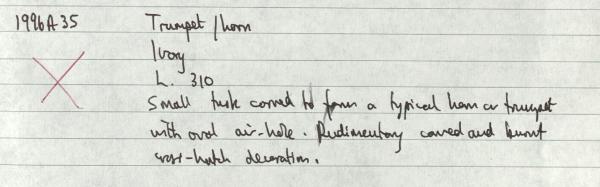 1996A35 Trumpet / horn
Ivory
L. 310
Small tusk carved to form a typical horn or trumpet
with oval air-hole. Rudimentary carved and burnt
cross-hatch decoration.